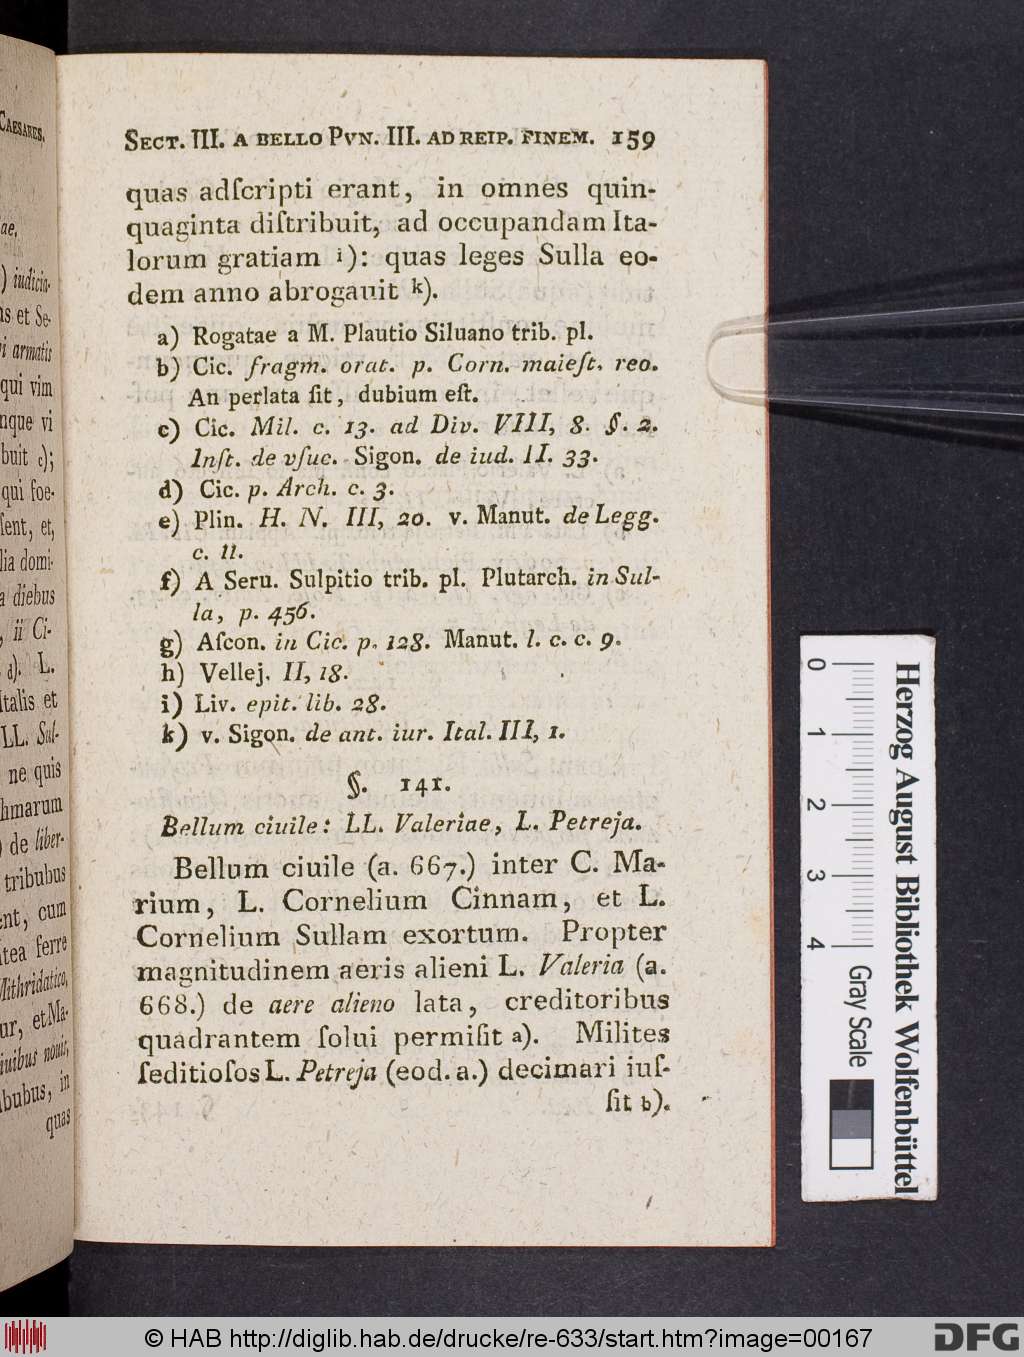 CAESARES.
ae,
) iudicia-
ns et Se-
vi armatis
qui vim
nque vi
buit c);
qui foe-
ſent, et,
lia domi-
a diebus
, ii Ci-
d). L.
Italis et
LL. Sul-
ne quis
chmarum
) de liber-
tribubus
ent, cum
ſtea ferre
Mithridatico,
ur, et Ma-
iuibus nouis,
ibubus, in
quas
SECT. III. A BELLO PVN. III. AD REIP. FINEM. 159
quas adſcripti erant, in omnes quin-
quaginta diſtribuit, ad occupandam Ita-
lorum gratiam i): quas leges Sulla eo-
dem anno abrogauit k).
a) Rogatae a M. Plautio Siluano trib. pl.
b) Cic. fragm. orat. p. Corn. maieſt. reo.
An perlata ſit, dubium eſt.
c) Cic. Mil. c. 13. ad Div. VIII, 8. §. 2.
Inſt. de vſuc. Sigon. de iud. II. 33.
d) Cic. p. Arch. c. 3.
e) Plin. H. N. III, 20. v. Manut. de Legg.
c. 11.
f) A Seru. Sulpitio trib. pl. Plutarch. in Sul-
la, p. 456.
g) Aſcon. in Cic. p. 128. Manut. l. c. c. 9.
h) Vellej. II, 18.
i) Liv. epit. lib. 28.
k) v. Sigon. de ant. iur. Ital. III, 1.
§. 141.
Bellum ciuile: LL. Valeriae, L. Petreja.
Bellum ciuile (a. 667.) inter C. Ma-
rium, L. Cornelium Cinnam, et L.
Cornelium Sullam exortum. Propter
magnitudinem aeris alieni L. Valeria (a.
668.) de aere alieno lata, creditoribus
quadrantem ſolui permiſit a). Milites
ſeditioſos L. Petreja (eod. a.) decimari iuſ-
ſit b).
0 1 2 3 4 Gray Scale
Herzog August Bibliothek Wolfenbüttel
© HAB http://diglib.hab.de/drucke/re-633/start.htm?image=00167
DFG